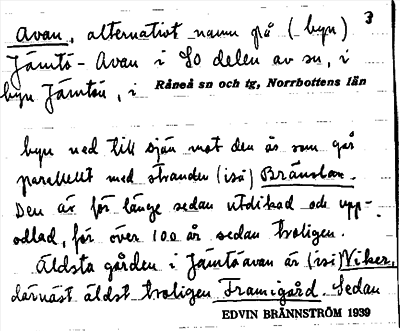 3
Avan, alternativt namn på (byn)
Jämtö-Avan i SO delen av sn, i
byn Jämtön, i Råneå sn och tg, Norrbottens län
byn ned till sjön mot den ås som går
parallellt med stranden (isö) Brännan.
Den är för länge sedan utdikad och upp-
odlad, för över 100 år sedan troligen.
Äldsta gården i Jämtöavan är (isi) Nikes,
därnäst äldst troligen Framigård. Sedan
EDVIN BRÄNNSTRÖM 1939